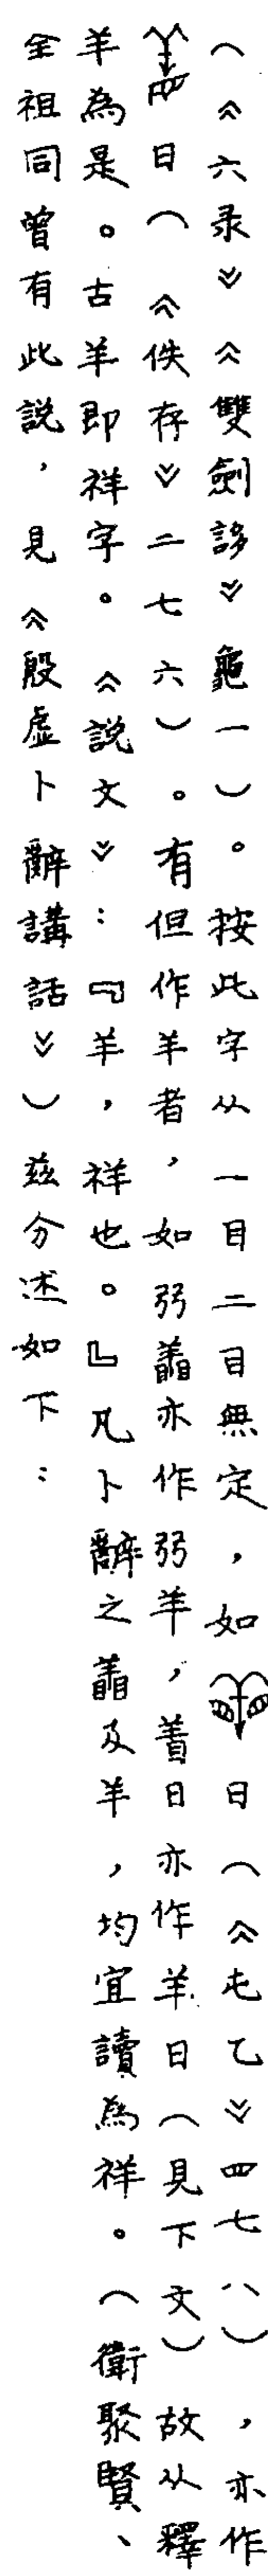 (《六录》《雙劍誃》龜一)。按此字从一目二目無定,如日(《屯乙》四七八),亦作
日(《佚存》二七六)。有但作羊者,如弜亦作弜羊,日亦作羊日(見下文)故从釋
羊為是。古羊即祥字。《說文》:『羊,祥也。』凡卜辭之及羊,均宜讀為祥。(衛聚賢、
全祖同曾有此說,見《殷虛卜辭講話》)茲分述如下: